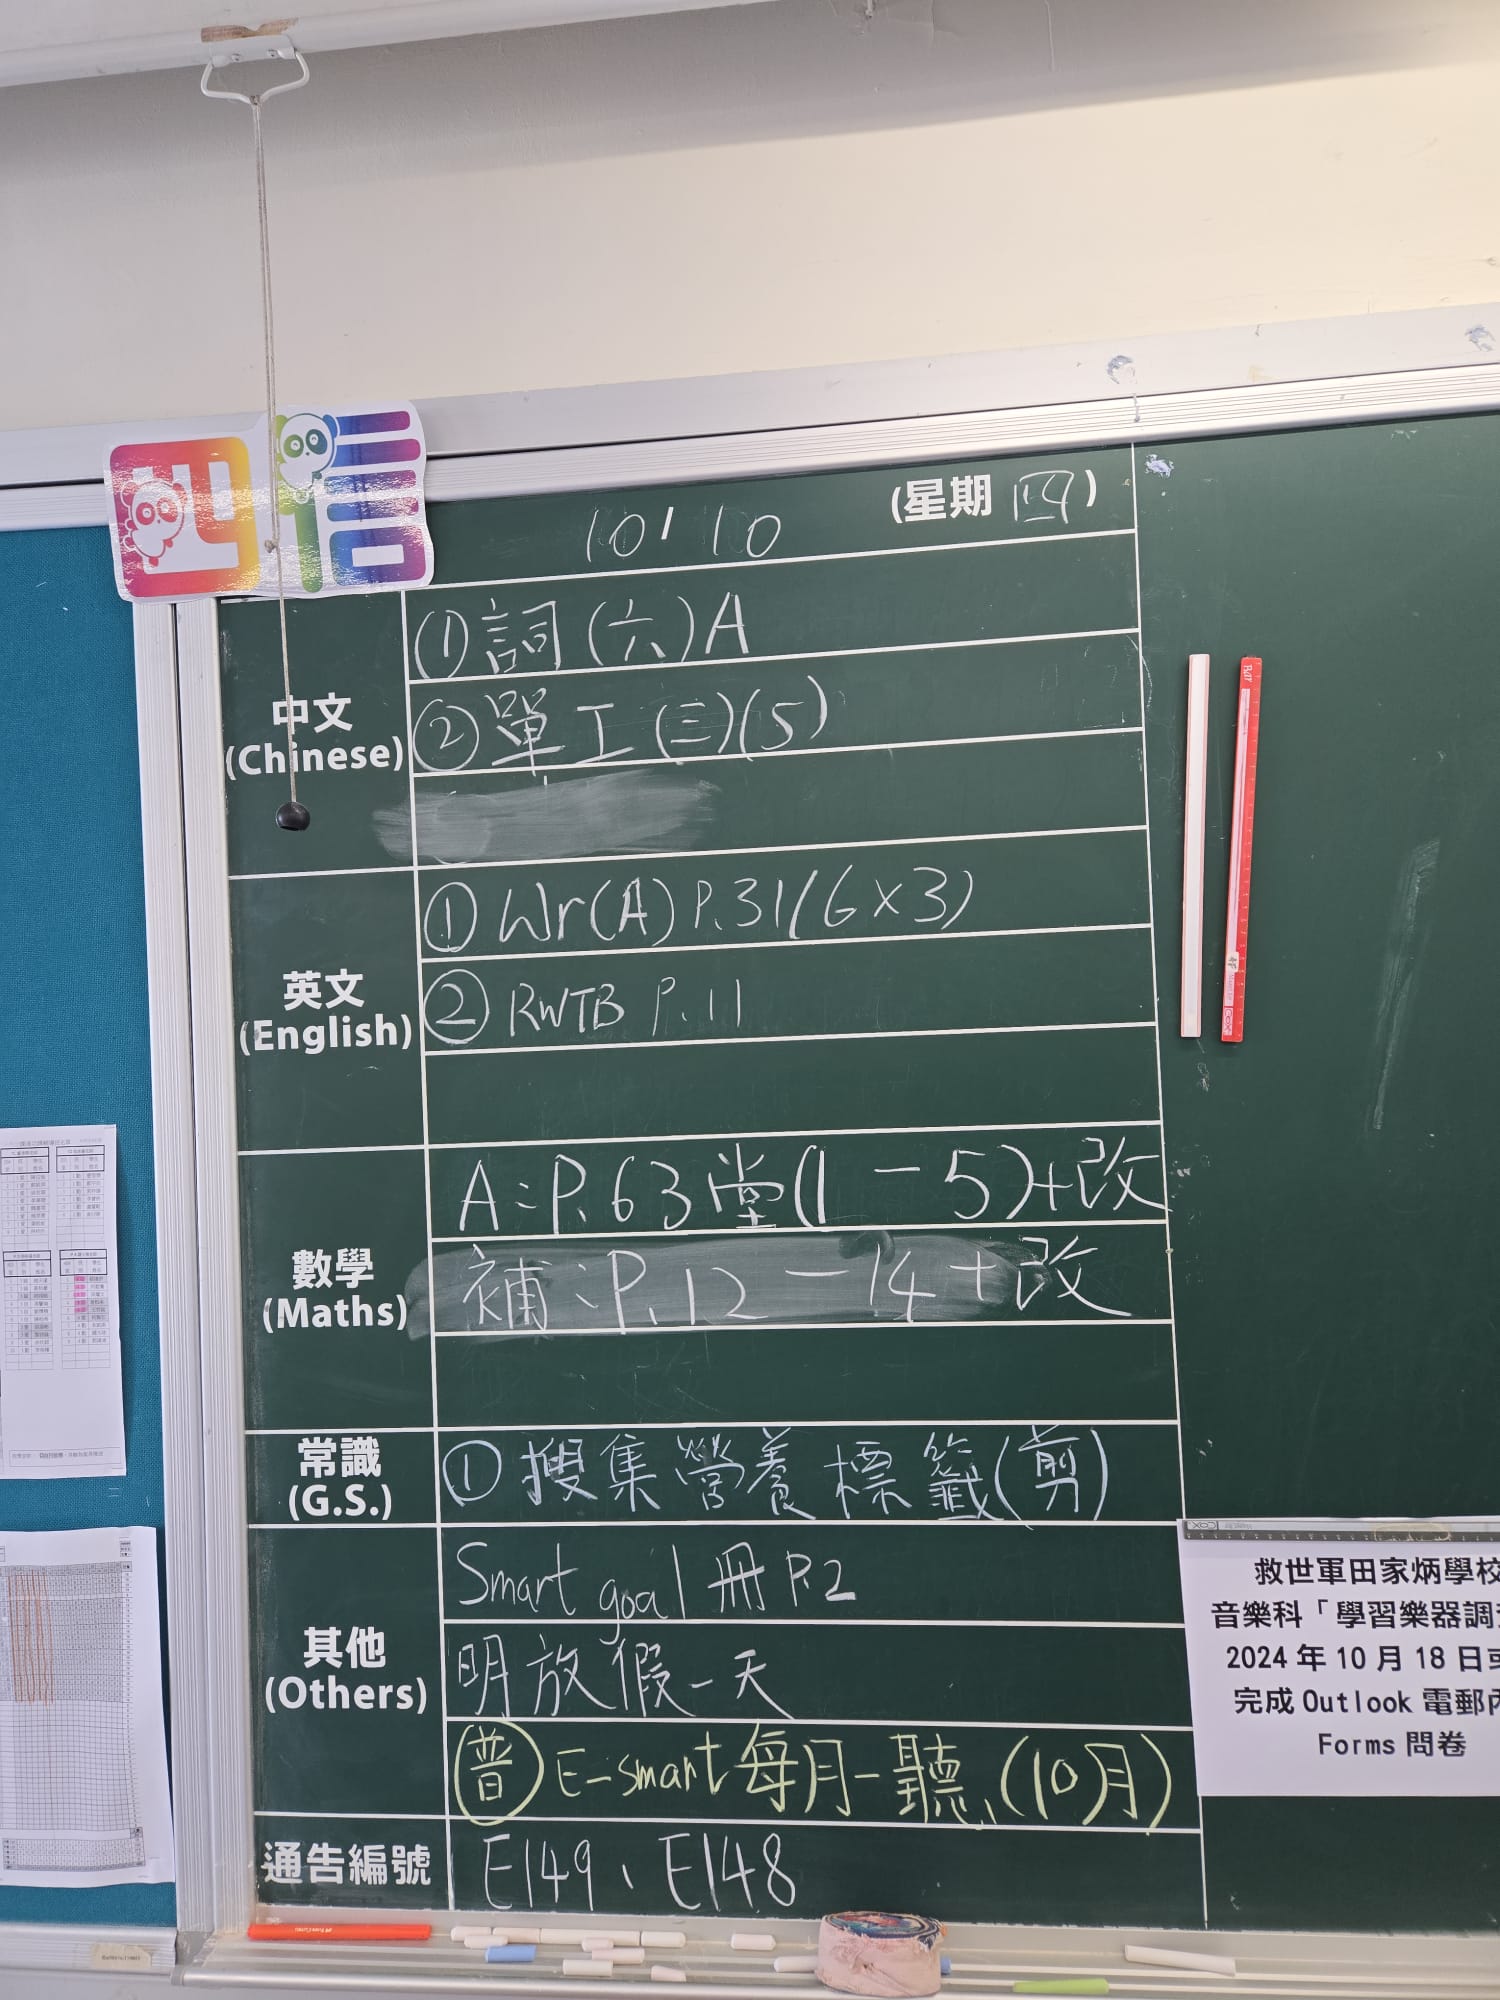 四信
10/10 (星期四)
中文
(Chinese)
①詞(六)A
②單工(三)(5)
英文
(English)
①Wr(A) P.31(6×3)
②RWTB P.11
數學
(Maths)
A:P.63堂(1-5)+改
補:P.12-14+改
常識
(G.S.)
①搜集營養標籤(剪)
其他
(Others)
Smart goal冊P.2
明放假一天
普 E-smart每月一聽(10月)
通告編號
E149、E148
救世軍田家炳學校
音樂科「學習樂器調
2024年10月18日或
完成Outlook電郵內
Forms問卷